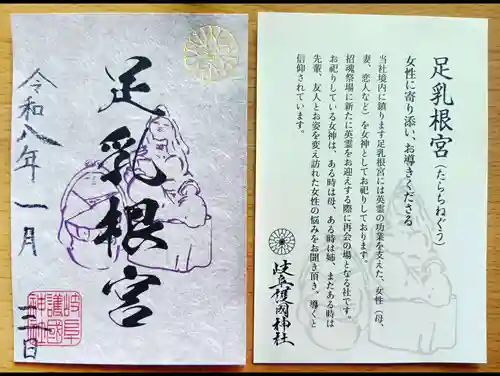 足乳根宮
令和八年一月三十日
岐阜
護國
神社
足乳根宮（たらちねぐう）
女性に寄り添い、お導きくださる
当社境内に鎮ります足乳根宮には英霊の功業を支えた、女性（母、
妻、恋人など）を女神としてお祀りしております。
招魂祭場に新たに英霊をお迎えする際に再会の場となる社です。
お祀りしている女神は、ある時は母、ある時は姉、またある時は
先輩、友人とお姿を変え訪れた女性の悩みをお聞き頂き。導くと
信仰されています。
岐阜護國神社